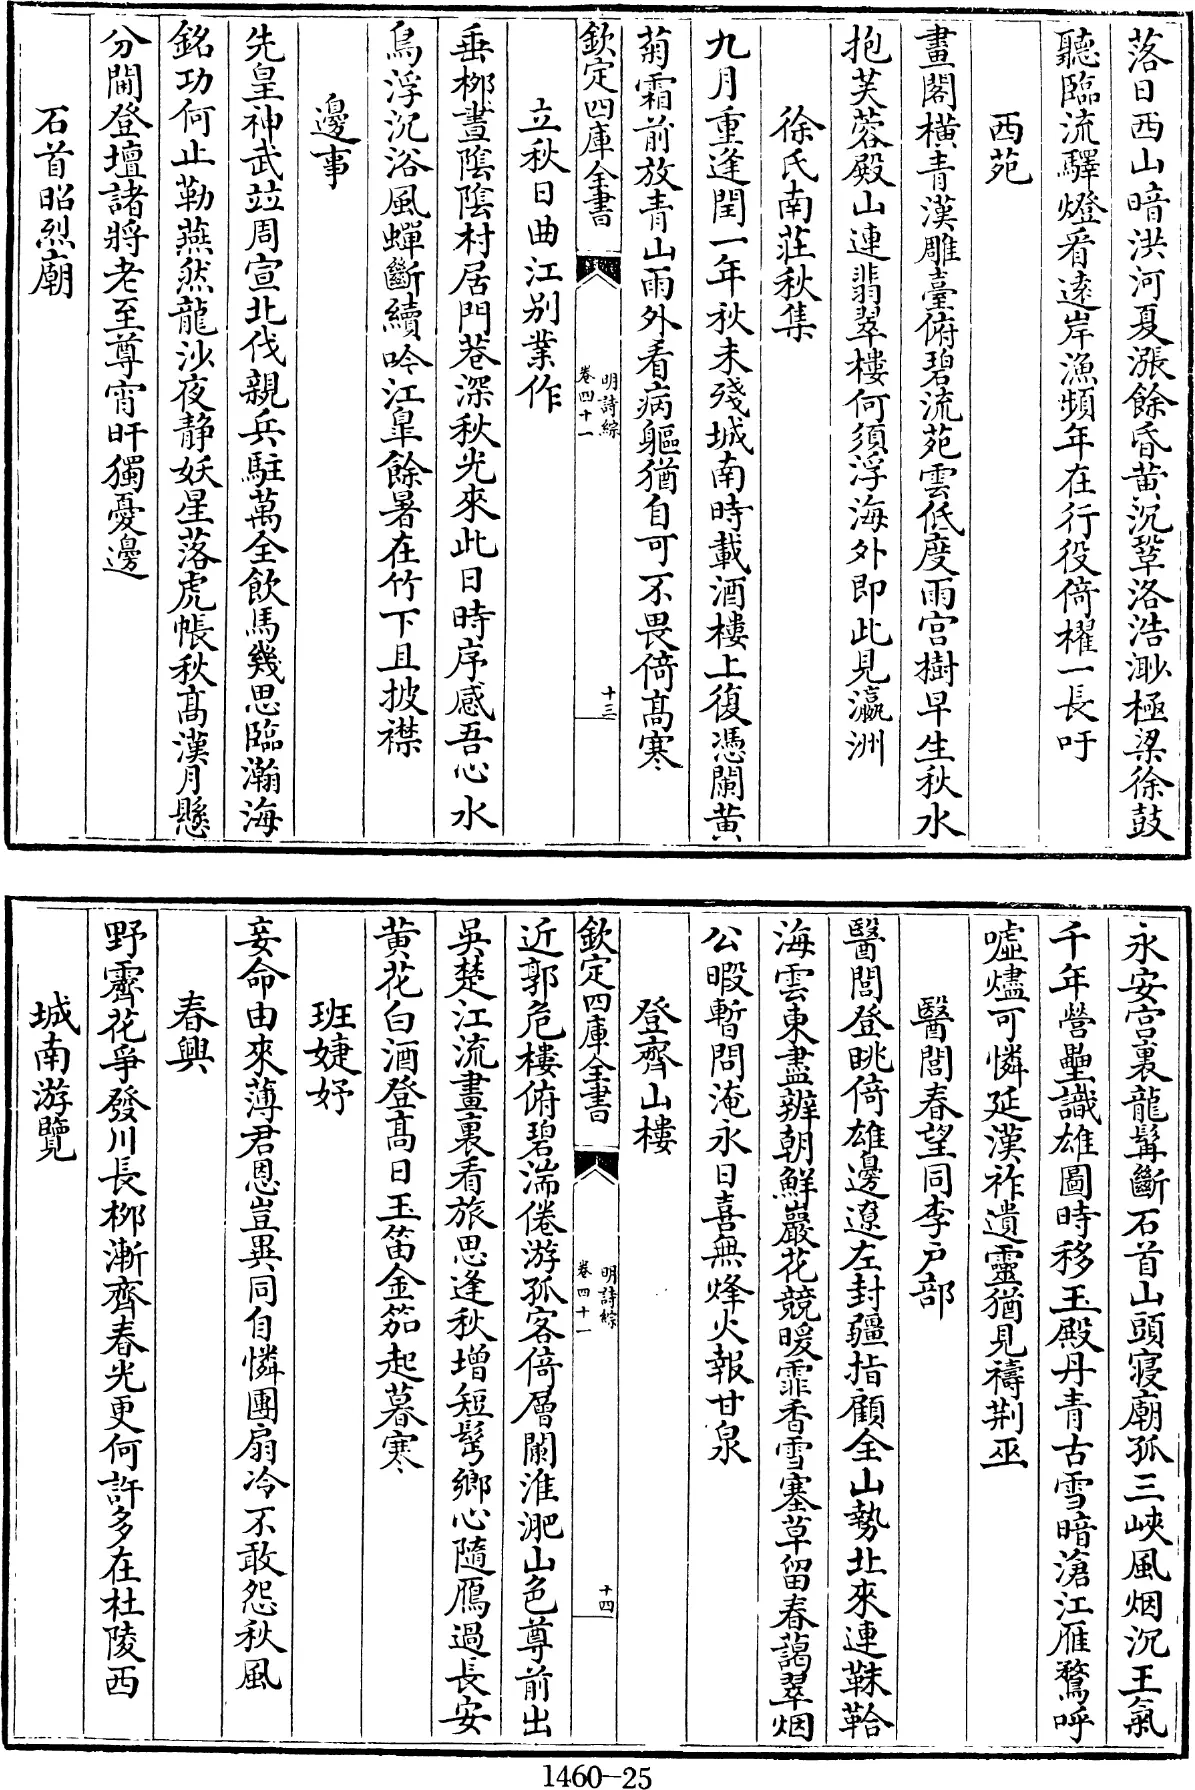 落日西山暗洪河夏漲餘昏黄沉鞏洛浩渺極梁徐鼓
聽臨流驛燈看遠岸漁頻年在行役倚櫂一長吁
西苑
畫閣橫青漢雕臺俯碧流苑雲低度雨宫樹早生秋水
抱芙蓉殿山連翡翠樓何須浮海外即此見瀛洲
徐氏南莊秋集
九月重逢閏一年秋未殘城南時載酒樓上復憑闌黄
菊霜前放青山雨外看病軀猶自可不畏倚髙寒
欽定四庫全書
明詩綜
卷四十一
十三
立秋日曲江别業作
垂栁晝隂隂村居門巷深秋光來此日時序感吾心水
鳥浮沉浴風蟬斷續吟江臯餘暑在竹下且披襟
邊事
先皇神武竝周宣北伐親兵駐萬全飲馬幾思臨瀚海
銘功何止勒燕然龍沙夜静妖星落虎帳秋髙漢月懸
分閫登壇諸將老至尊宵旰獨憂邊
石首昭烈廟
永安宫裏龍髯斷石首山頭寢廟孤三峽風烟沉王氣
千年營壘識雄圖時移玉殿丹青古雪暗滄江雁鶩呼
嘘燼可憐延漢祚遺靈猶見禱荆巫
醫閭春望同李户部
醫閭登眺倚雄邊遼左封疆指顧全山勢北來連靺鞨
海雲東盡辨朝鮮巖花競暖霏香雪塞草留春藹翠烟
公暇暫問淹永日喜無烽火報甘泉
登齊山樓
欽定四庫全書
明詩綜
卷四十一
十四
近郭危樓俯碧湍倦游孤客倚層闌淮淝山色尊前出
吳楚江流畫裏看旅思逢秋增短髩鄉心隨鴈過長安
黄花白酒登髙日玉笛金笳起暮寒
班婕妤
妾命由來薄君恩豈異同自憐團扇冷不敢怨秋風
春興
野霽花爭發川長栁漸齊春光更何許多在杜陵西
城南游覽
1460-25